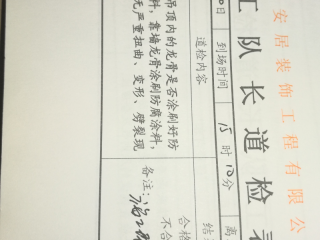 安居装饰工程有限公
工队长道检
0日 到场时间 15时10分 离
道检内容
吊顶内的龙骨是否涂刷好防
料，靠墙龙骨涂刷防腐涂料，
无严重扭曲、变形、劈裂现
备注：
合格
不合